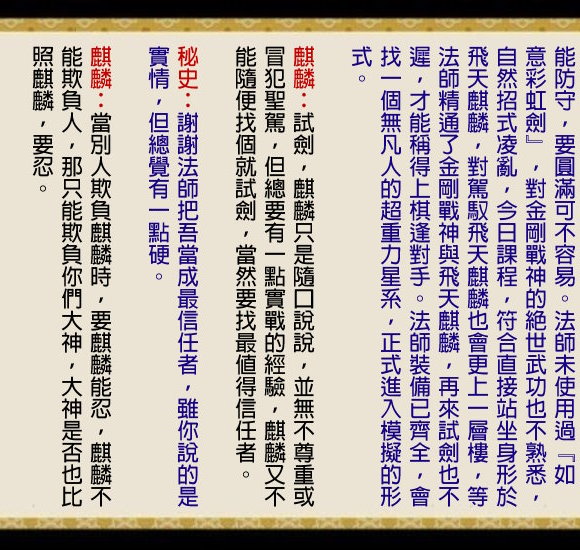 能防守，要圓滿可不容易。法師未使用過『如
意彩虹劍』，對金剛戰神的絕世武功也不熟悉，
自然招式凌亂，今日課程，符合直接站坐身形於
飛天麒麟，對駕馭飛天麒麟也會更上一層樓，等
法師精通了金剛戰神與飛天麒麟，再來試劍也不
遲，才能稱得上棋逢對手。法師裝備已齊全，會
找一個無凡人的超重力星系，正式進入模擬的形
式。
麒麟：試劍，麒麟只是隨口說說，並無不尊重或
冒犯聖駕，但總要有一點實戰的經驗，麒麟又不
能隨便找個就試劍，當然要找最值得信任者。
秘史：謝謝法師把吾當成最信任者，雖你說的是
實情，但總覺有一點硬。
麒麟：當別人欺負麒麟時，要麒麟能忍，麒麟不
能欺負人，那只能欺負你們大神，大神是否也比
照麒麟，要忍。